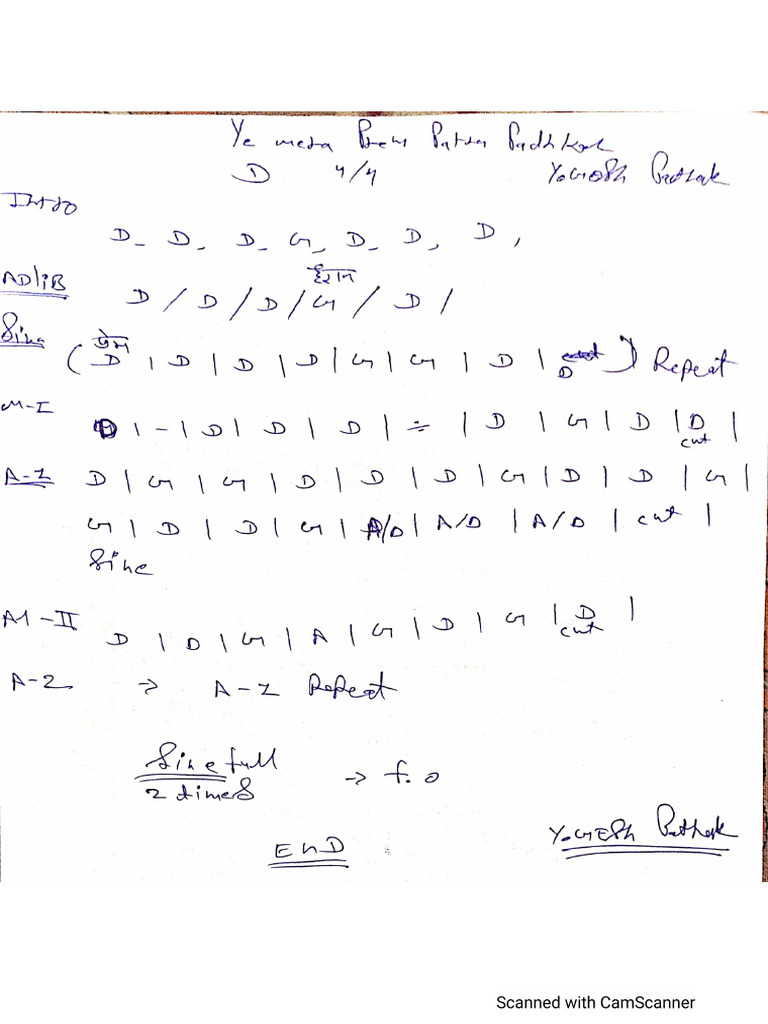 Ye mera Prem Patra Padhkar
D 4/4 YOGESh Pathak
Intro
D - D - D - G - D - D, D,
ADLiB D / D / D / G / D /
हैरान
Sine ( D | D | D | D | G | G | D | D ) Repeat
प्रेम
M-I D | - | D | D | D | ÷ | D | G | D | D |
cut
A-1 D | G | G | D | D | D | G | D | D | G |
G | D | D | G | A/D | A/D | A/D | cut |
Sine
M-II D | D | G | A | G | D | G | D |
cut
A-2 → A-1 Repeat
Sine full → f.o
2 times
END
YOGESh Pathak
Scanned with CamScanner